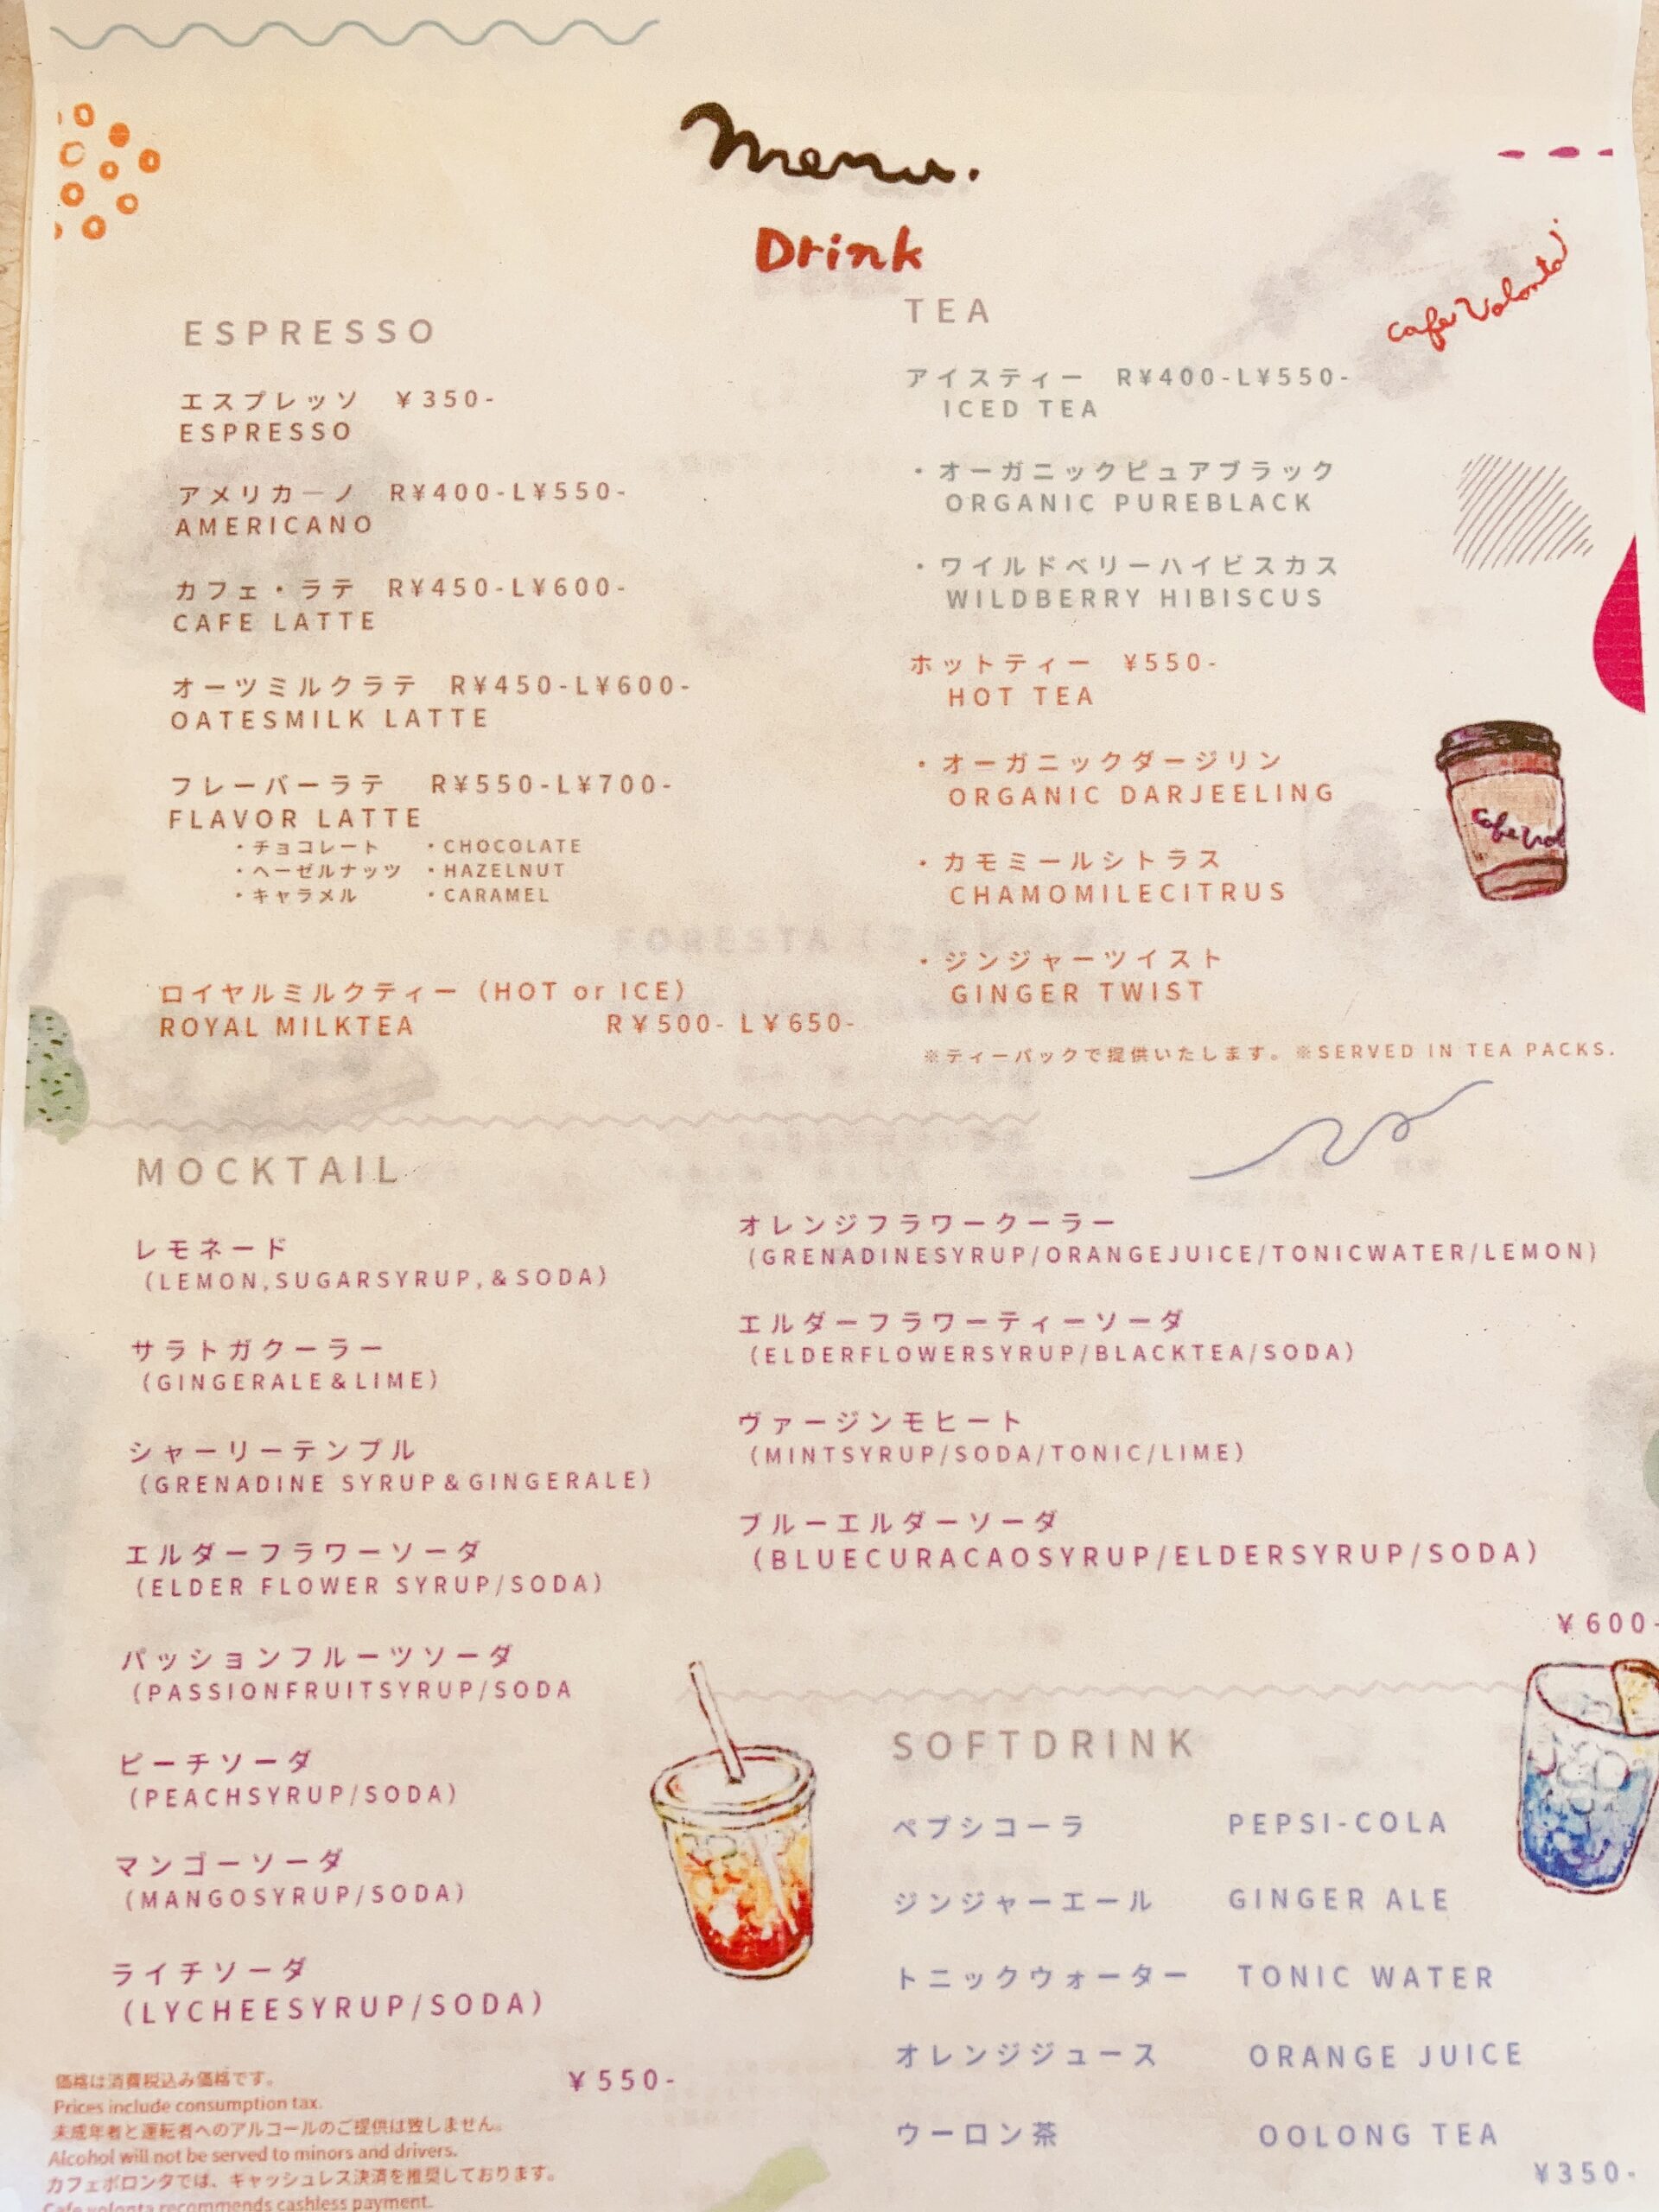 menu.
Drink
cafe Volonta!
ESPRESSO
エスプレッソ ¥350-
ESPRESSO
アメリカーノ R¥400-L¥550-
AMERICANO
カフェ・ラテ R¥450-L¥600-
CAFE LATTE
オーツミルクラテ R¥450-L¥600-
OATESMILK LATTE
フレーバーラテ R¥550-L¥700-
FLAVOR LATTE
・チョコレート ・CHOCOLATE
・ヘーゼルナッツ ・HAZELNUT
・キャラメル ・CARAMEL
ロイヤルミルクティー（HOT or ICE）
ROYAL MILKTEA R¥500- L¥650-
TEA
アイスティー R¥400-L¥550-
ICED TEA
・オーガニックピュアブラック
ORGANIC PUREBLACK
・ワイルドベリーハイビスカス
WILDBERRY HIBISCUS
ホットティー ¥550-
HOT TEA
・オーガニックダージリン
ORGANIC DARJEELING
・カモミールシトラス
CHAMOMILECITRUS
・ジンジャーツイスト
GINGER TWIST
※ティーパックで提供いたします。※SERVED IN TEA PACKS.
cafe Vol
MOCKTAIL
レモネード
（LEMON,SUGARSYRUP,&SODA）
サラトガクーラー
（GINGERALE&LIME）
シャーリーテンプル
（GRENADINE SYRUP&GINGERALE）
エルダーフラワーソーダ
（ELDER FLOWER SYRUP/SODA）
パッションフルーツソーダ
（PASSIONFRUITSYRUP/SODA
ピーチソーダ
（PEACHSYRUP/SODA）
マンゴーソーダ
（MANGOSYRUP/SODA）
ライチソーダ
（LYCHEESYRUP/SODA）
¥550-
オレンジフラワークーラー
（GRENADINESYRUP/ORANGEJUICE/TONICWATER/LEMON）
エルダーフラワーティーソーダ
（ELDERFLOWERSYRUP/BLACKTEA/SODA）
ヴァージンモヒート
（MINTSYRUP/SODA/TONIC/LIME）
ブルーエルダーソーダ
（BLUECURACAOSYRUP/ELDERSYRUP/SODA）
¥600-
SOFTDRINK
ペプシコーラ PEPSI-COLA
ジンジャーエール GINGER ALE
トニックウォーター TONIC WATER
オレンジジュース ORANGE JUICE
ウーロン茶 OOLONG TEA
¥350-
価格は消費税込み価格です。
Prices include consumption tax.
未成年者と運転者へのアルコールのご提供は致しません。
Alcohol will not be served to minors and drivers.
カフェボロンタでは、キャッシュレス決済を推奨しております。
Cafe volonta recommends cashless payment.